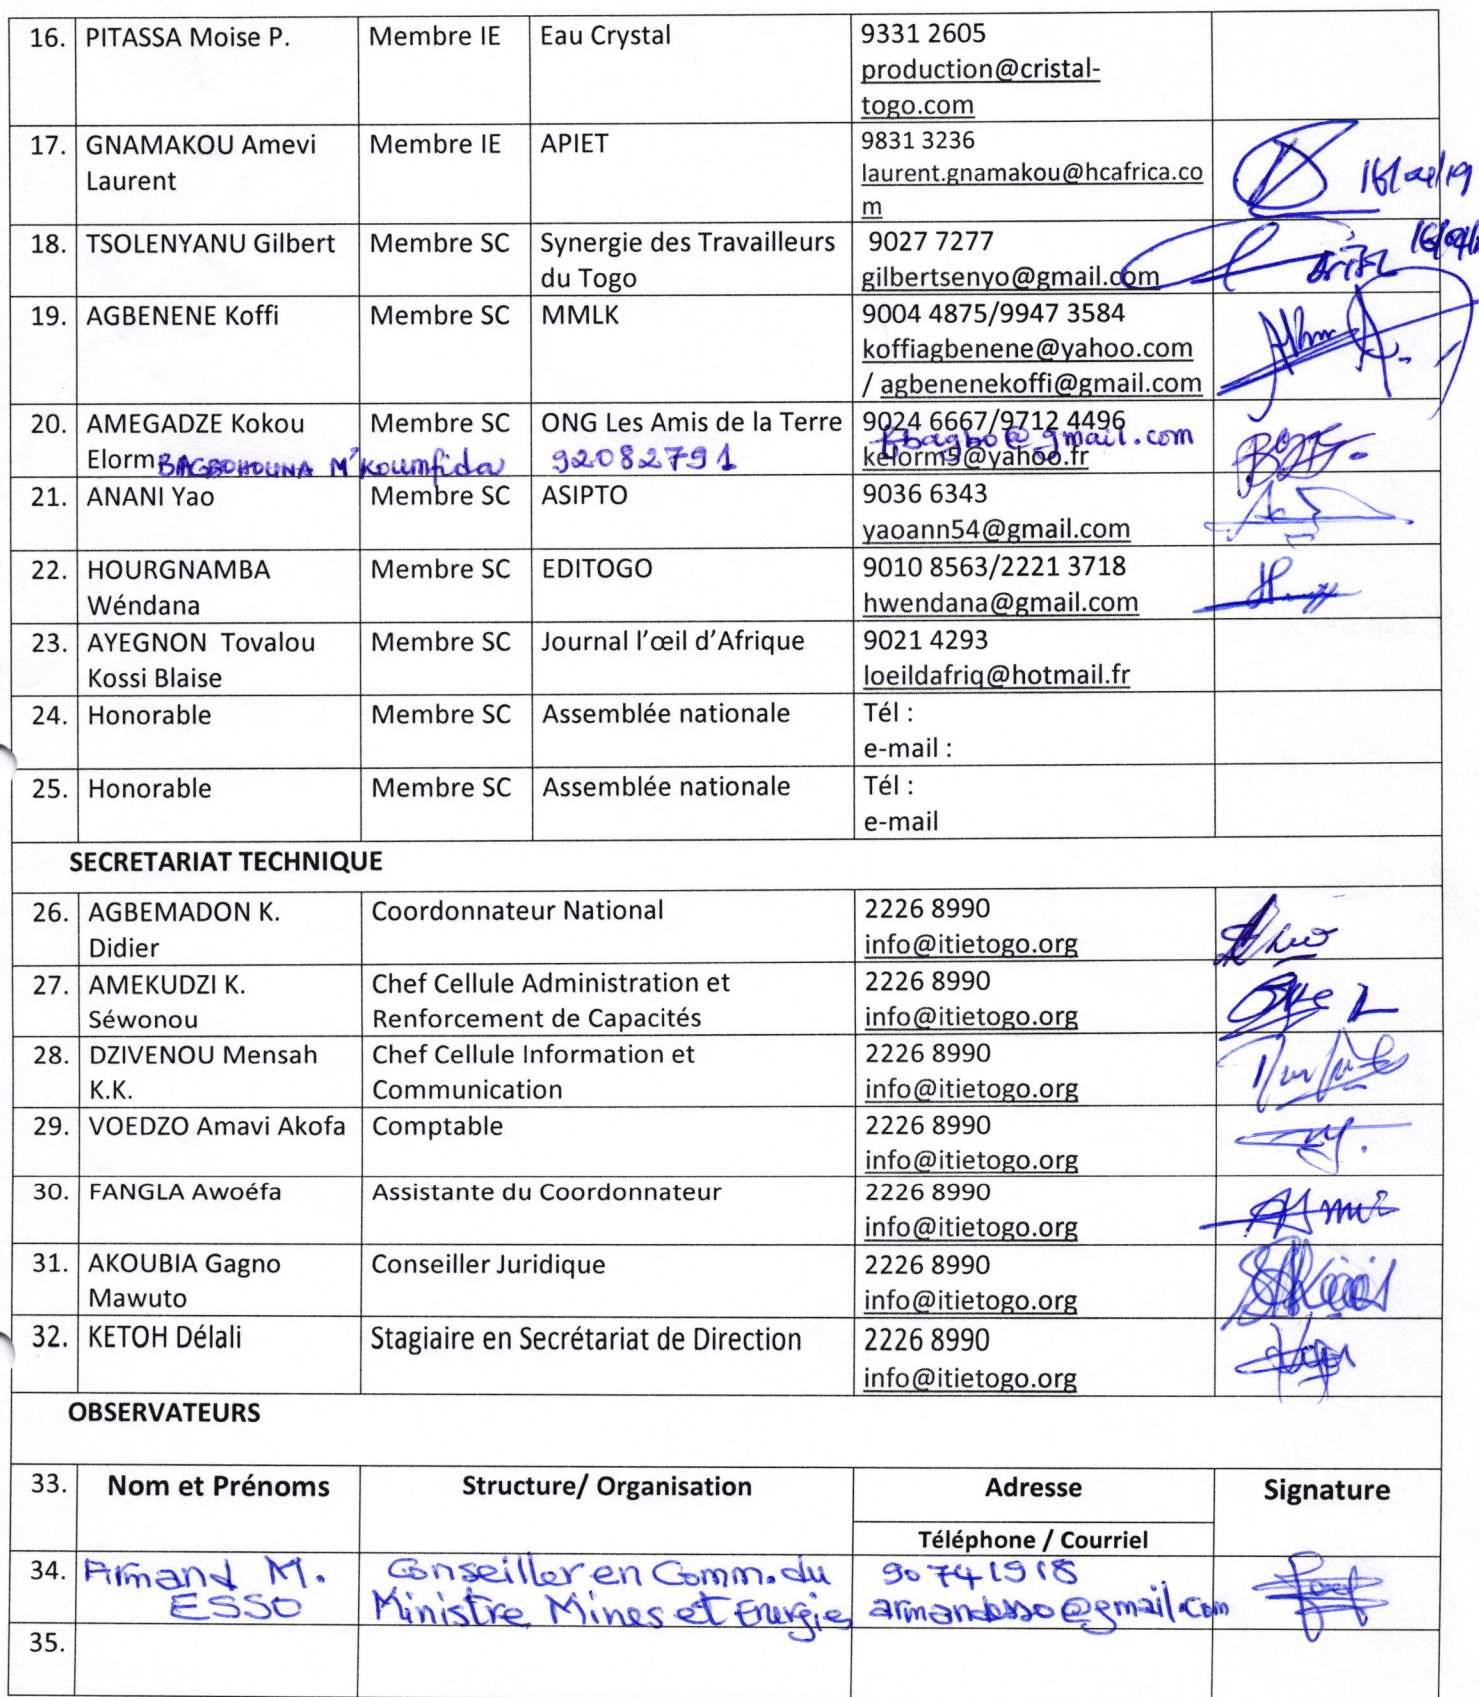 16. PITASSA Moise P. Membre IE Eau Crystal 9331 2605
production@cristal-
togo.com
17. GNAMAKOU Amevi Membre IE APIET 9831 3236
Laurent laurent.gnamakou@hcafrica.co
m 16/04/19
18. TSOLENYANU Gilbert Membre SC Synergie des Travailleurs 9027 7277
du Togo gilbertsenyo@gmail.com
19. AGBENENE Koffi Membre SC MMLK 9004 4875/9947 3584
koffiagbenene@yahoo.com
/ agbenenekoffi@gmail.com
20. AMEGADZE Kokou Membre SC ONG Les Amis de la Terre 9024 6667/9712 4496
fbagbo@gmail.com
Elorm kelorm5@yahoo.fr
BAGBOHOUNA M'Koumfida 92082791
21. ANANI Yao Membre SC ASIPTO 9036 6343
yaoann54@gmail.com
22. HOURGNAMBA Membre SC EDITOGO 9010 8563/2221 3718
Wéndana hwendana@gmail.com
23. AYEGNON Tovalou Membre SC Journal l'œil d'Afrique 9021 4293
Kossi Blaise loeildafriq@hotmail.fr
24. Honorable Membre SC Assemblée nationale Tél :
e-mail :
25. Honorable Membre SC Assemblée nationale Tél :
e-mail
SECRETARIAT TECHNIQUE
26. AGBEMADON K. Coordonnateur National 2226 8990
Didier info@itietogo.org
27. AMEKUDZI K. Chef Cellule Administration et 2226 8990
Séwonou Renforcement de Capacités info@itietogo.org
28. DZIVENOU Mensah Chef Cellule Information et 2226 8990
K.K. Communication info@itietogo.org
29. VOEDZO Amavi Akofa Comptable 2226 8990
info@itietogo.org
30. FANGLA Awoéfa Assistante du Coordonnateur 2226 8990
info@itietogo.org
31. AKOUBIA Gagno Conseiller Juridique 2226 8990
Mawuto info@itietogo.org
32. KETOH Délali Stagiaire en Secrétariat de Direction 2226 8990
info@itietogo.org
OBSERVATEURS
33. Nom et Prénoms Structure/ Organisation Adresse Signature
Téléphone / Courriel
34. Armand M. Conseiller en Comm. du 90741918
ESSO Ministre Mines et Energies armandesso@gmail.com
35.